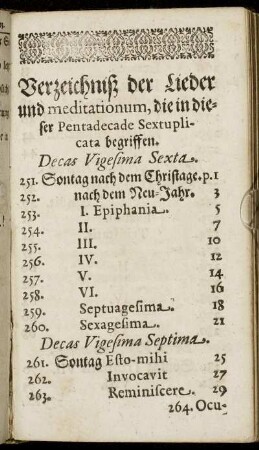 Verzeichniß der Lieder
und meditationum, die in die-
ser Pentadecade Sextupli-
cata begriffen.
Decas Vigesima Sexta.
251. Sontag nach dem Christage. p. 1
252. nach dem Neu-Jahr. 3
253. I. Epiphania. 5
254. II. 7
255. III. 10
256. IV. 12
257. V. 14
258. VI. 16
259. Septuagesima. 18
260. Sexagesima. 21
Decas Vigesima Septima.
261. Sontag Esto-mihi 25
262. Invocavit 27
263. Reminiscere. 29
264. Ocu-